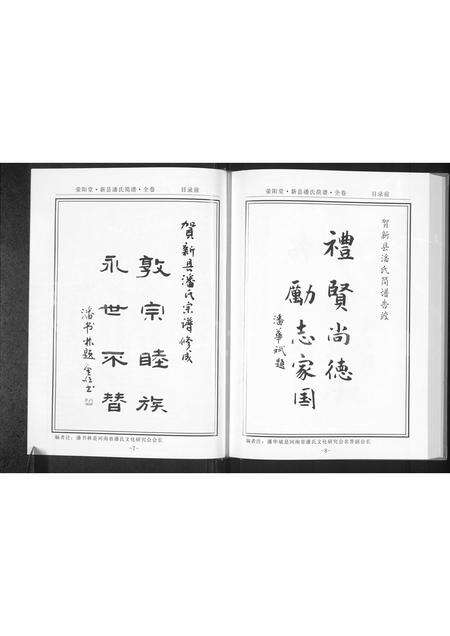 荥阳堂·新县潘氏简谱·全卷 目录前
賀新县潘氏宗譜修成
敦宗睦族
永世不替
潘书林题
编者注：潘书林是河南省潘氏文化研究会会长
-7-
荥阳堂·新县潘氏简谱·全卷 目录前
贺新县潘氏简谱告竣
禮賢尚德
勵志家国
潘華斌題
编者注：潘华斌是河南省潘氏文化研究会名誉副会长
-8-